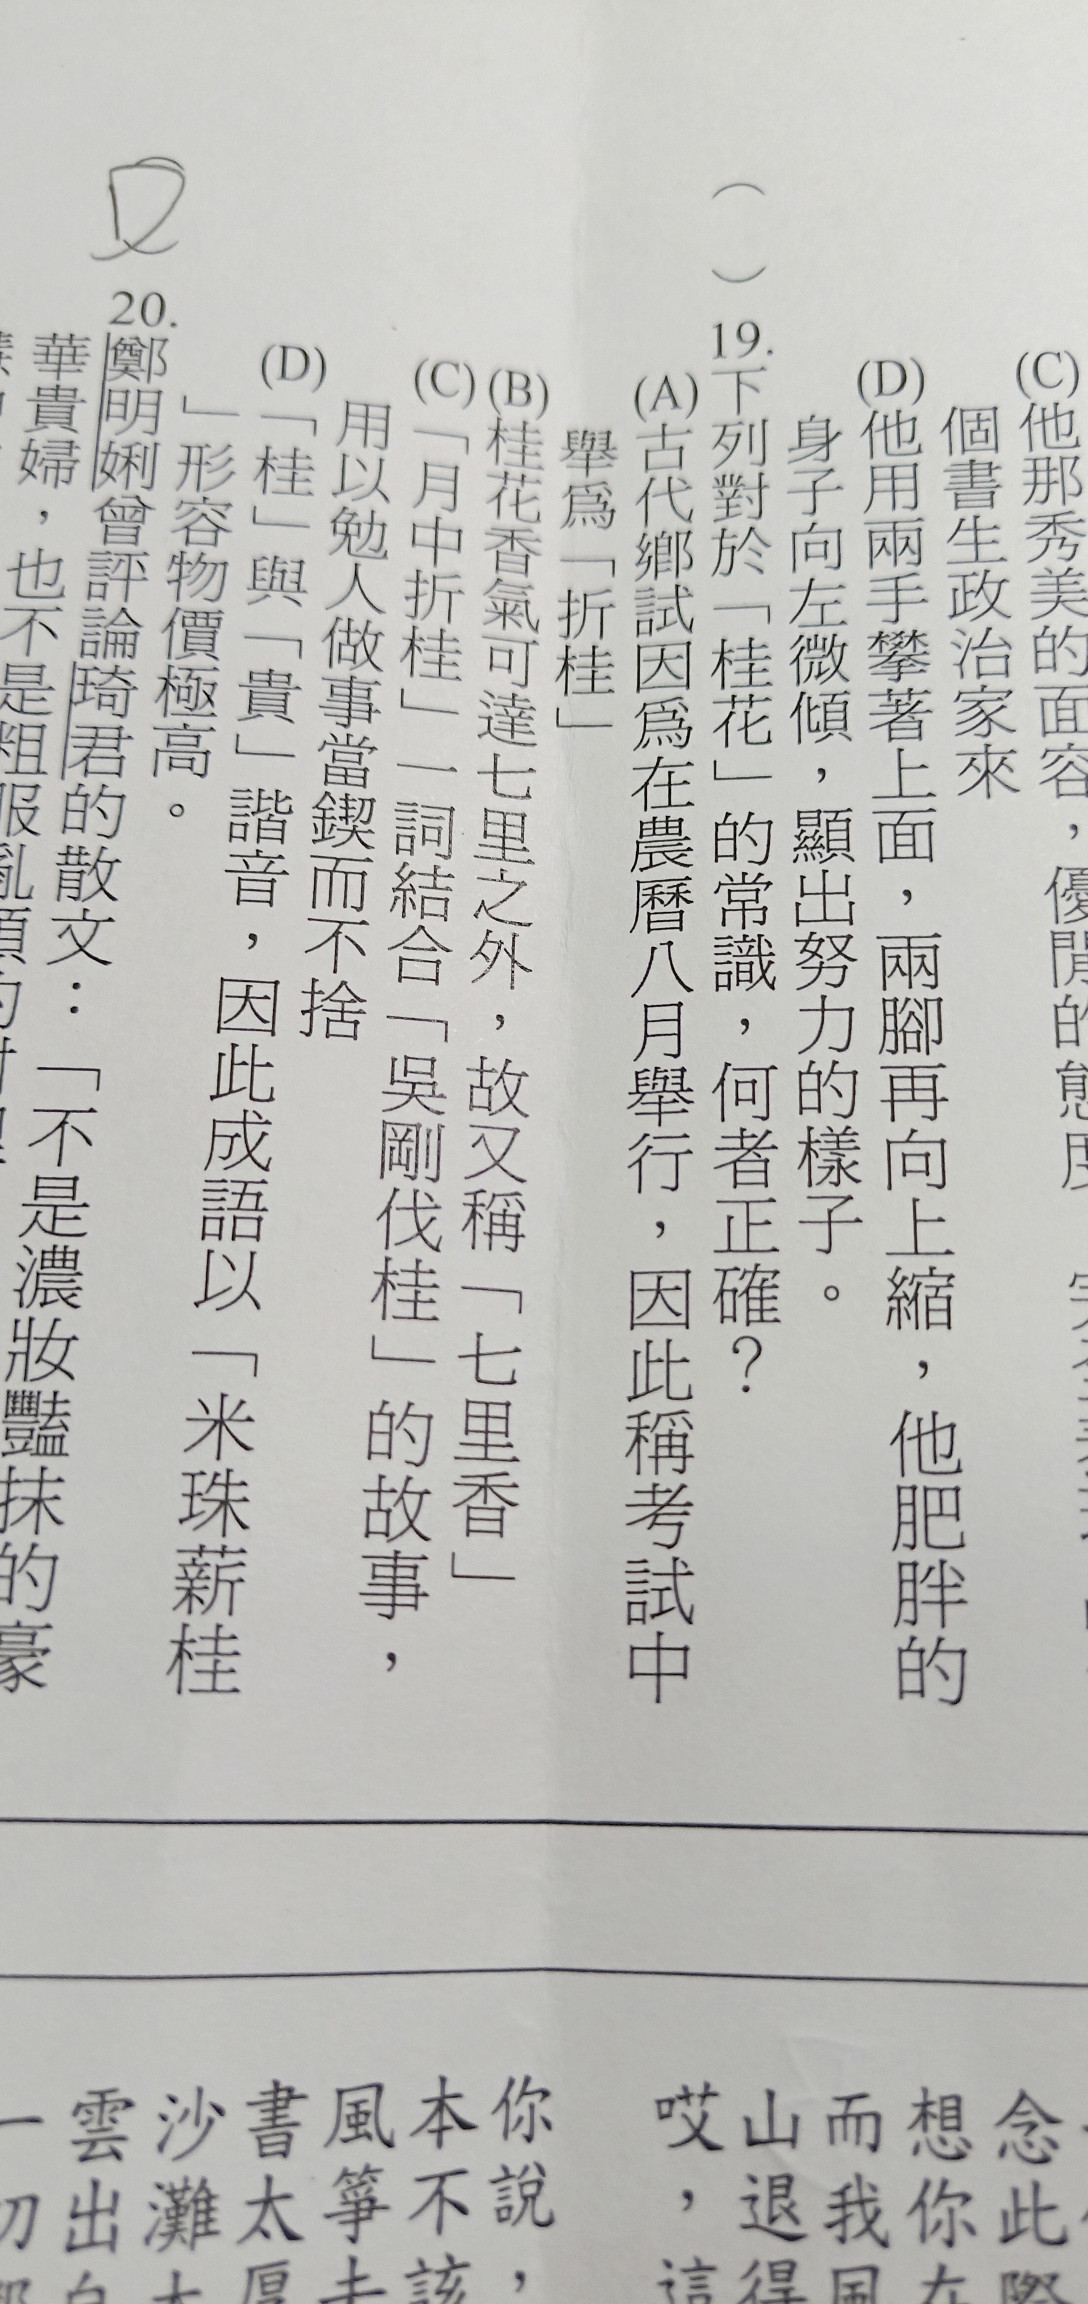 (C)他那秀美的面容，優閒的態度
個書生政治家來
(D)他用兩手攀著上面，兩腳再向上縮，他肥胖的
身子向左微傾，顯出努力的樣子。
（ ）19.下列對於「桂花」的常識，何者正確？
(A)古代鄉試因爲在農曆八月舉行，因此稱考試中
舉爲「折桂」
(B)桂花香氣可達七里之外，故又稱「七里香」
(C)「月中折桂」一詞結合「吳剛伐桂」的故事，
用以勉人做事當鍥而不捨
(D)「桂」與「貴」諧音，因此成語以「米珠薪桂
」形容物價極高。
D 20.鄭明娳曾評論琦君的散文：「不是濃妝豔抹的豪
華貴婦，也不是粗服亂頭的村
念此際
想你在
而我風
山退得
哎，這
你說，
本不該
風箏去
書太厚
沙灘太
雲出自
一切都